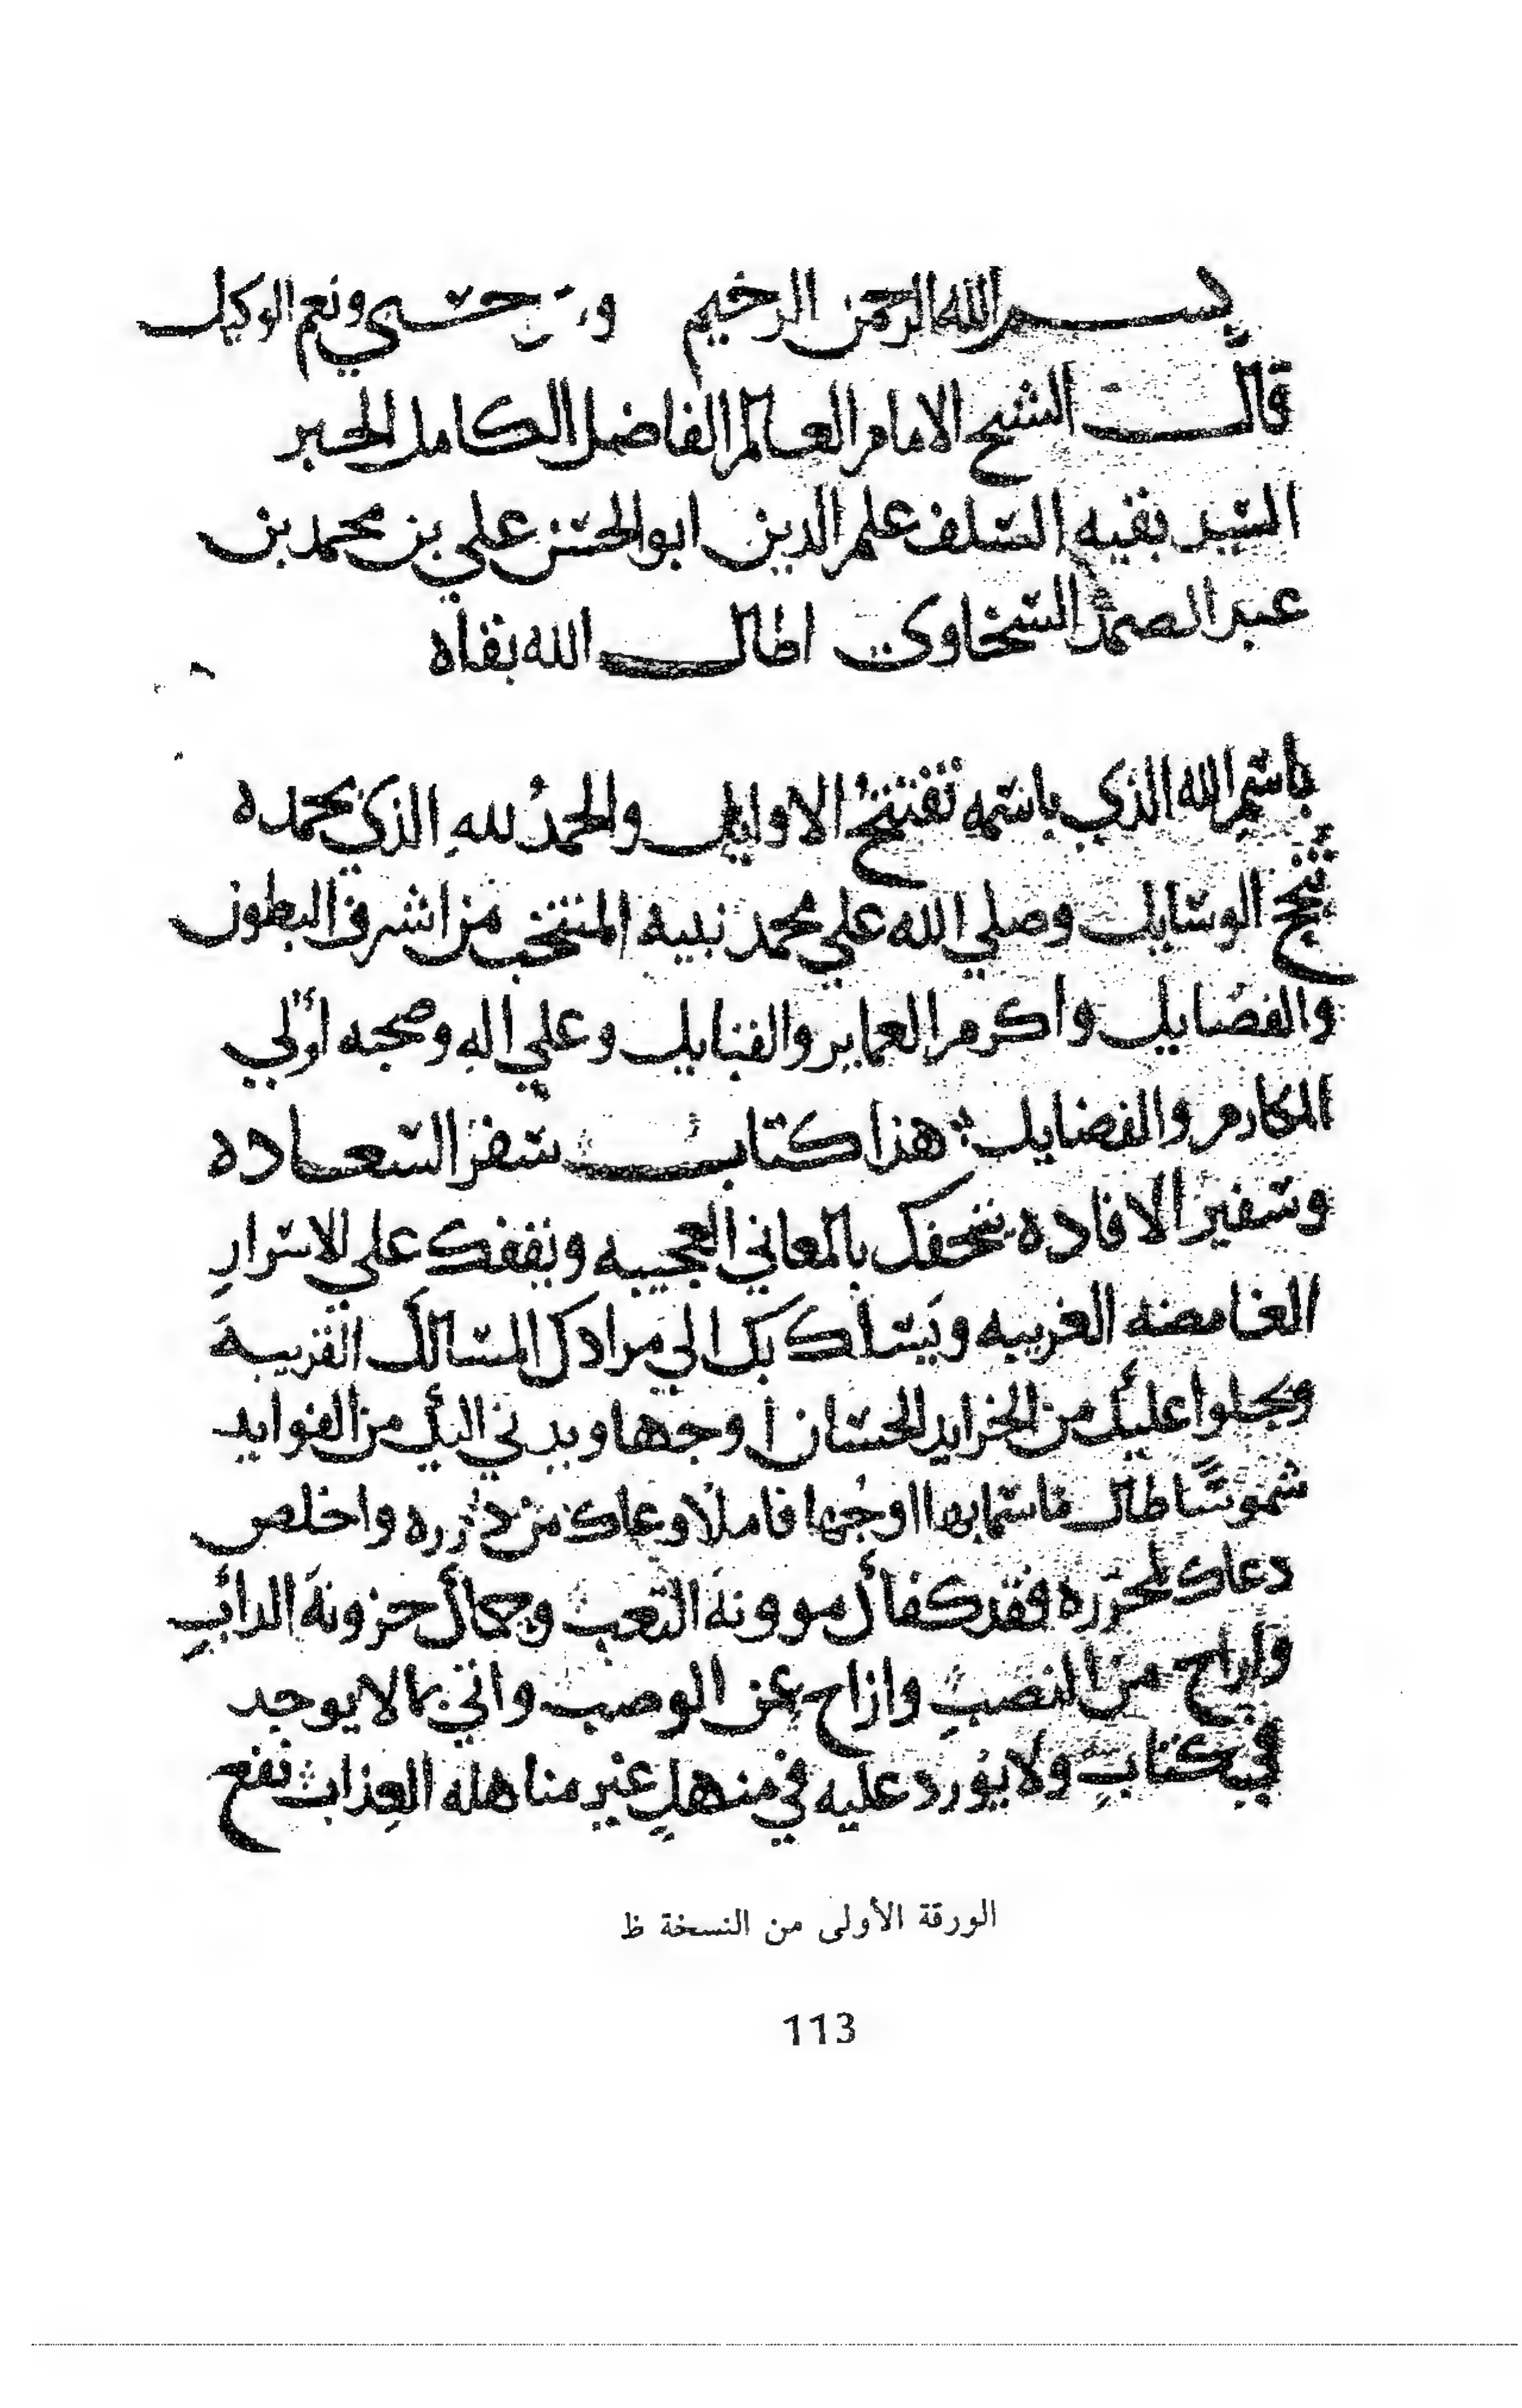 بسم الله الرحمن الرحيم وهو حسبي ونعم الوكيل
قال الشيخ الامام العالم الفاضل الكامل الحبر
السيد بقيه السلف علم الدين ابو الحسن علي بن محمد بن
عبد الصمد السخاوي اطال الله بقاه
باسم الله الذي باسمه تفتتح الاوايل والحمدُ للهِ الذي بحمده
تنجح الوسايل وصلي الله علي محمد نبيه المنتخب من اشرف البطون
والفصايل واكرم العماير والقبايل وعلي اله وصحبه اولي
المكارم والفضايل هذا كتاب سفر السعاده
وسفير الافاده يتحفك بالمعاني العجيبه ويقفك علي الاسرارِ
الغامضه الغريبه ويَسلك بك الي مرادك المسالكَ القريبةَ
ويجلوا عليك من الخرايد الحسان اوجها ويدني اليك من الفوايد
شموسًا طال ما سما بها اوجُها فاملأ وعاك من درره واخلص
دعاك لمحرّره فقد كفاك موونةَ التعب وحماك حزونةَ الدابِ
واراح من النصبِ وازاح عن الوصب واتي بما لا يوجد
في كتابٍ ولا يورد عليه في منهلٍ غير مناهله العِذاب نفع
الورقة الأولى من النسخة ظ
113